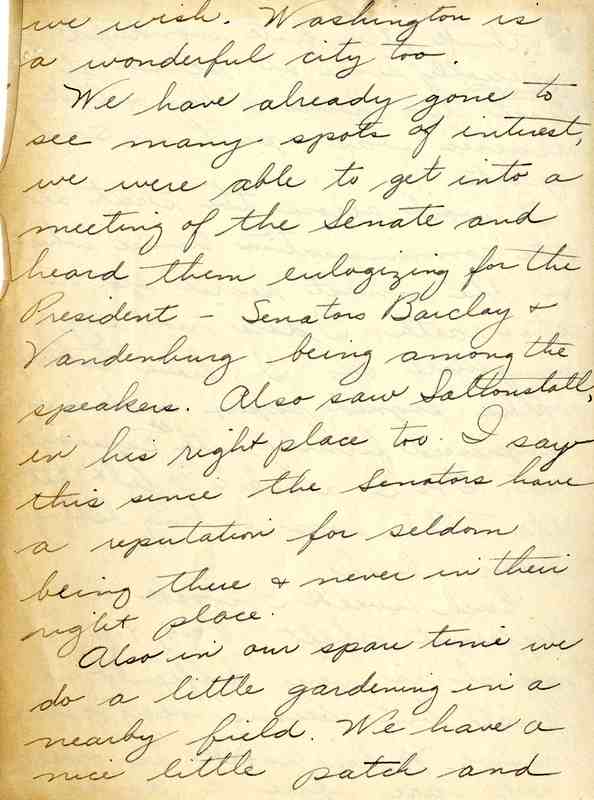 we wish. Washington is
a wonderful city too.
We have already gone to
see many spots of interest,
we were able to get into a
meeting of the Senate and
heard them eulogizing for the
President - Senators Barclay &
Vandenburg being among the
speakers. Also saw Saltonstall,
in his right place too. I say
this since the Senators have
a reputation for seldom
being there & never in their
right place.
Also in our spare time we
do a little gardening in a
nearby field. We have a
nice little patch and